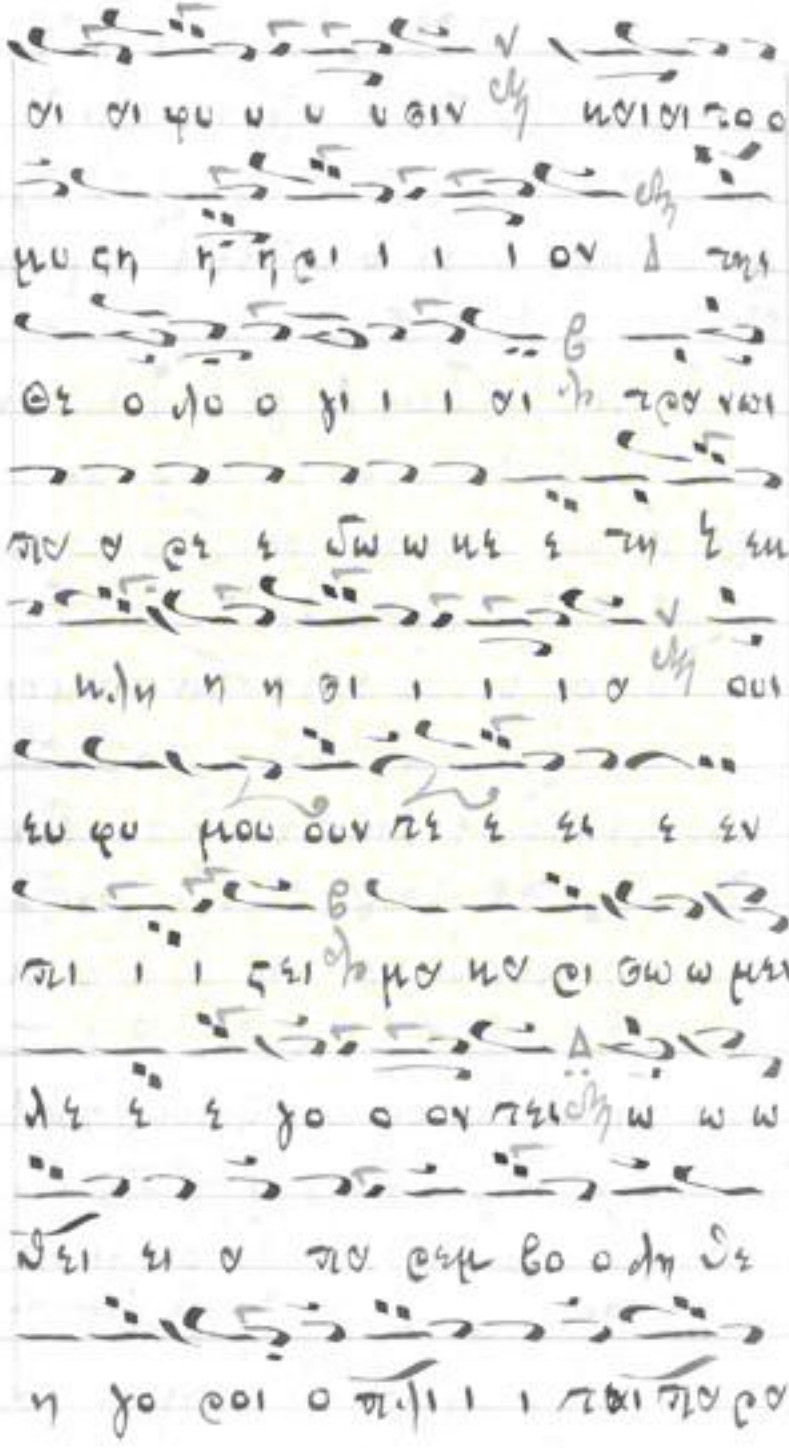 αι αι φυ υ υ υ σιν και αι το ο
μυ ςη η η ρι ι ι ι ι ον Δ της
Θε ο λο ο γι ι ι αι τρα νωι
πα α ρε ε δω ω κε ε τη ε εκ
κλη η η σι ι ι ι α ους
ευ φυ μου ουν τε ε ες ε εν
πι ι ι ςει μα κα ρι σω ω μεν
λε ε ε γο ο ον τες ω ω ω
θει ει α πα ρεμ βο ο λη θε
η γο ροι ο πλι ι ι ται πα ρα